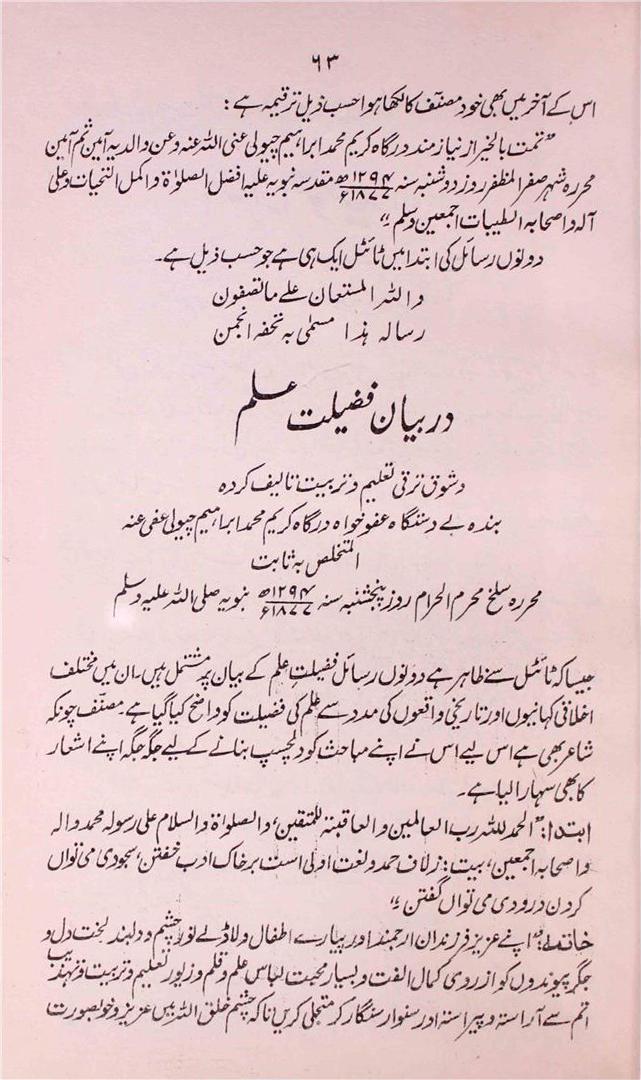 ۶۳
اس کے آخر میں بھی خود مصنّف کا لکھا ہوا حسب ذیل ترقیمہ ہے:
"تمت بالخیر از نیاز مند درگاہ کریم محمد ابراہیم چیولی عنی اللہ عنہ و عن والدیہ آمین ثم آمین
محررہ شہر صفر المظفر روز دو شنبہ سنہ ۱۲۹۴ھ/۱۸۷۷ء مقدسہ نبویہ علیہ افضل الصلوٰۃ و اکمل التحیات و علی
آلہ و اصحابہ الطیبات اجمعین وسلم"
دونوں رسائل کی ابتدا میں ٹائٹل ایک ہی ہے جو حسب ذیل ہے۔
واللہ المستعان علے ما تصفون
رسالہ ہذا مسمّی بہ تحفہ انجمن
در بیان فضیلت علم
و شوق ترقی تعلیم و تربیت تالیف کردہ
بندہ بے دستگاہ عفو خواہ درگاہ کریم محمد ابراہیم چیولی عفی عنہ
المتخلص بہ ثابت
محررہ سلخ محرم الحرام روز پنجشنبہ سنہ ۱۲۹۴ھ/۱۸۷۷ء نبویہ صلی اللہ علیہ وسلم
جیسا کہ ٹائٹل سے ظاہر ہے دونوں رسائل فضیلت علم کے بیان پر مشتمل ہیں۔ ان میں مختلف
اخلاقی کہانیوں اور تاریخی واقعوں کی مدد سے علم کی فضیلت کو واضح کیا گیا ہے۔ مصنّف چونکہ
شاعر بھی ہے اس لیے اس نے اپنے مباحث کو دلچسپ بنانے کے لیے جگہ جگہ اپنے اشعار
کا بھی سہارا لیا ہے۔
ابتدا: "الحمد للہ رب العالمین والعاقبۃ للمتقین، والصلوٰۃ والسلام علی رسولہ محمد و الہ
و اصحابہ اجمعین، بیت: زلاف حمد و نعت اولیٰ است بر خاک ادب خفتن، سجودی می تواں
کردن درودی می تواں گفتن"
خاتمہ: "اپنے عزیز فرزندان ارجمند اور پیارے اطفال ولاڈلے نور چشم و دلبند لخت دل و
جگر پیوندوں کو از روی کمال الفت و بسیار محبت لباس علم و قلم و زیور تعلیم و تربیت و تہذیب
اتم سے آراستہ و پیراستہ اور سنوار سنگار کر متجلی کریں تاکہ چشم خلق اللہ میں عزیز و خوبصورت